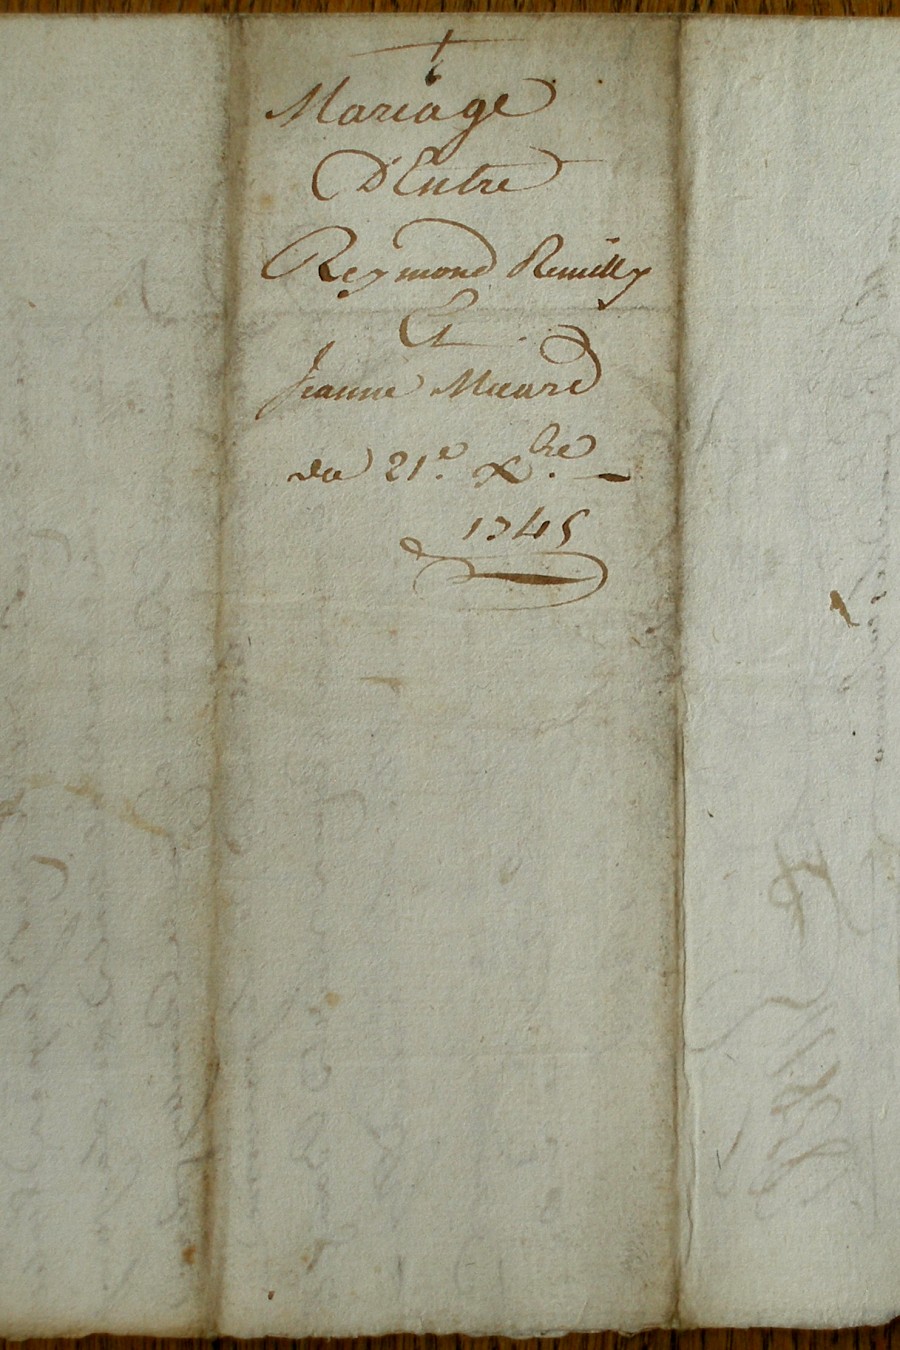 Mariage
D'Entre
Reymond Remilly
Et
Jeanne Micard
du 21e. Xbre.
1745